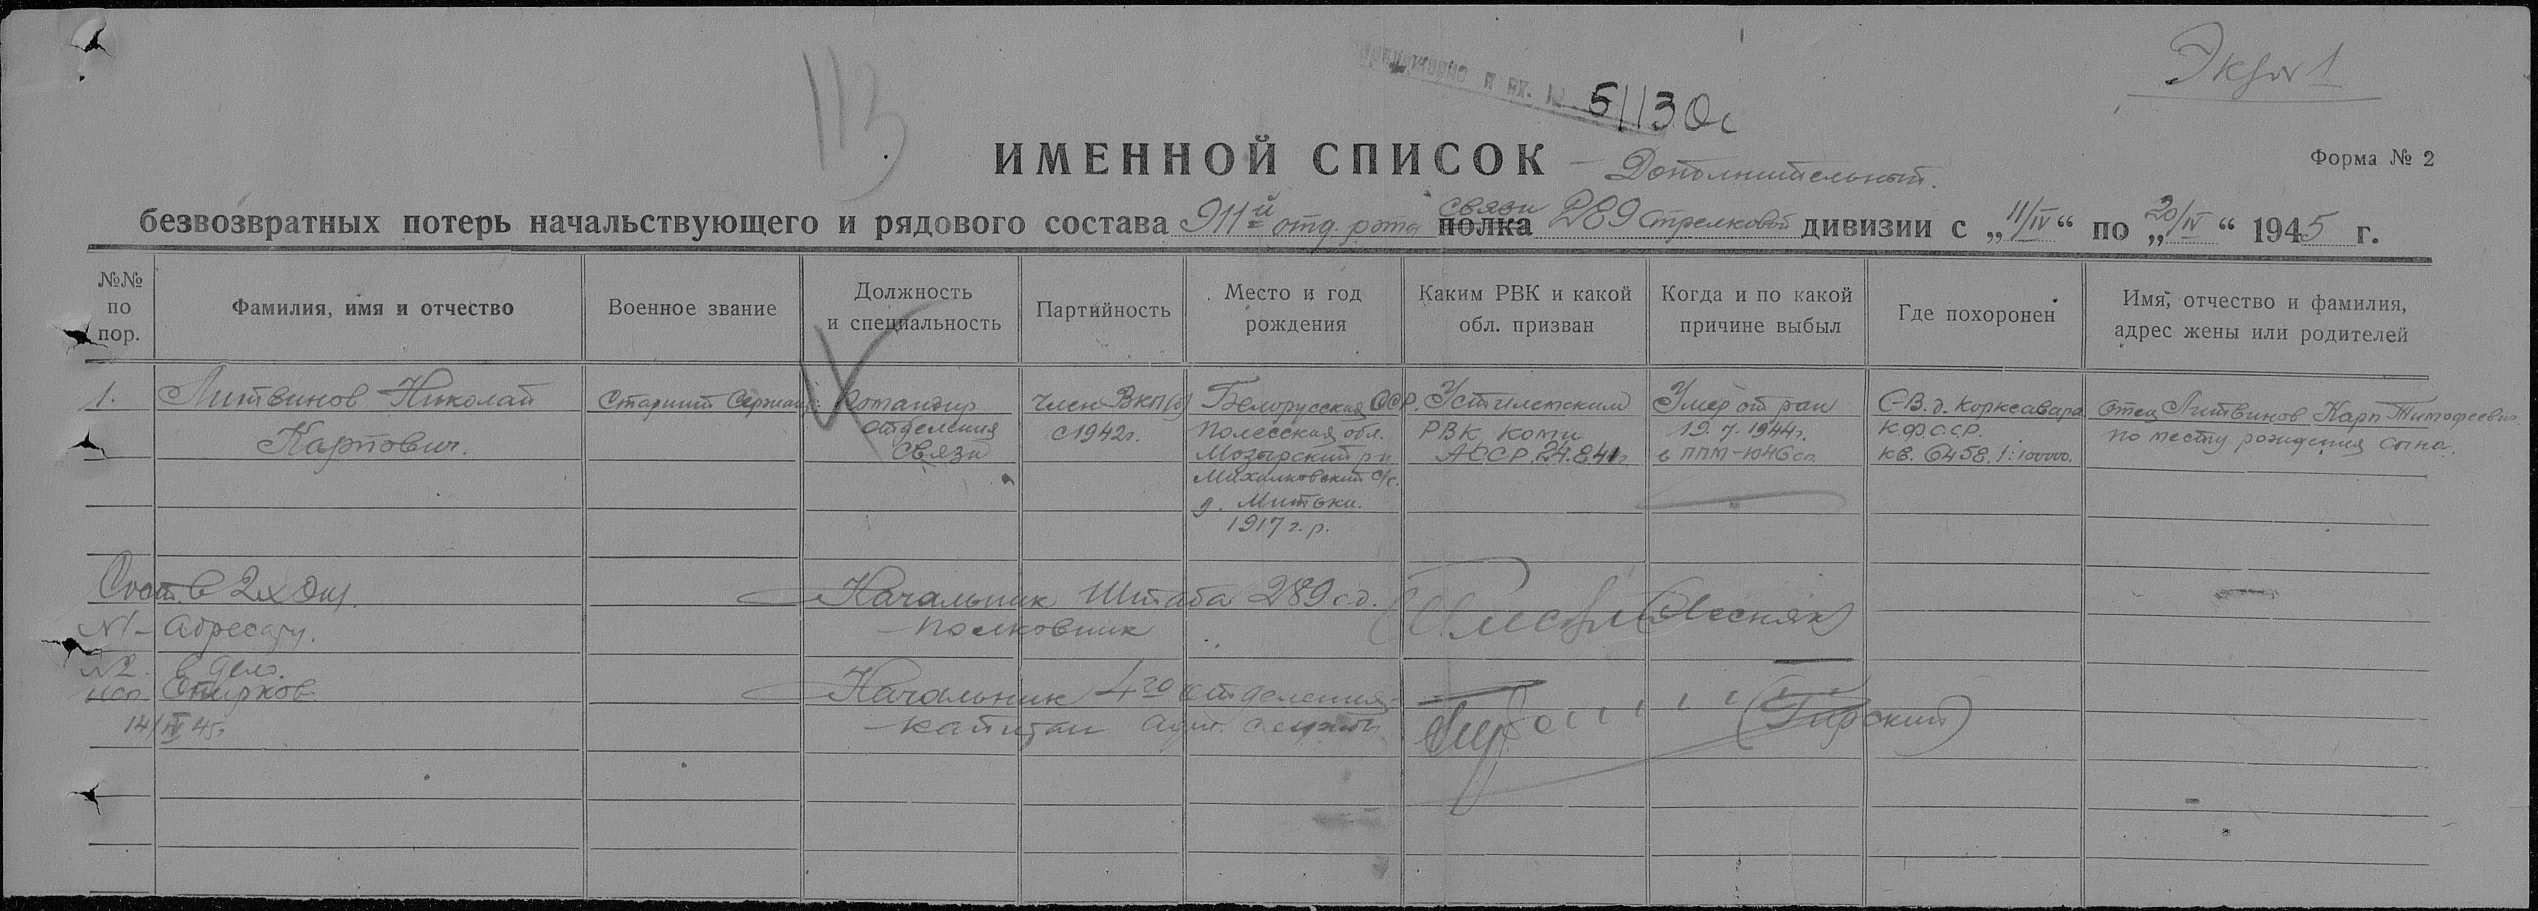 113
51130с
Экз № 1
ИМЕННОЙ СПИСОК – Дополнительный.
Форма № 2
безвозвратных потерь начальствующего и рядового состава 911й отд. рота связи полка 289 стрелковой дивизии с „11/IV“ по „20/IV“ 1945 г.
№№ по пор.
Фамилия, имя и отчество
Военное звание
Должность и специальность
Партийность
Место и год рождения
Каким РВК и какой обл. призван
Когда и по какой причине выбыл
Где похоронен
Имя, отчество и фамилия, адрес жены или родителей
1.
Литвинов Николай
Карпович.
Старший Сержант
Командир
отделения
связи
Член ВКП(б)
с 1942г.
Белорусская ССР.
Полесская обл.
Мозырский р-н
Михалковский с/с.
д. Митьки.
1917 г. р.
РВК Коми
АССР. 24.8.41г.
Умер от ран
19.7.1944г.
в ППМ-1046 сп
С-В. д. Корксавара
КФССР.
кв. 6458. 1:100000.
отец Литвинов Карп Тимофеевич
по месту рождения сына.
Сост. в 2х экз.
№1 – адресату.
№2. в дело.
исп. Спирков
14/IV 45г.
Начальник Штаба 289 с.д.
– полковник
(Лесняк)
Начальник 4го отделения
– капитан адм. службы
(Гирский)